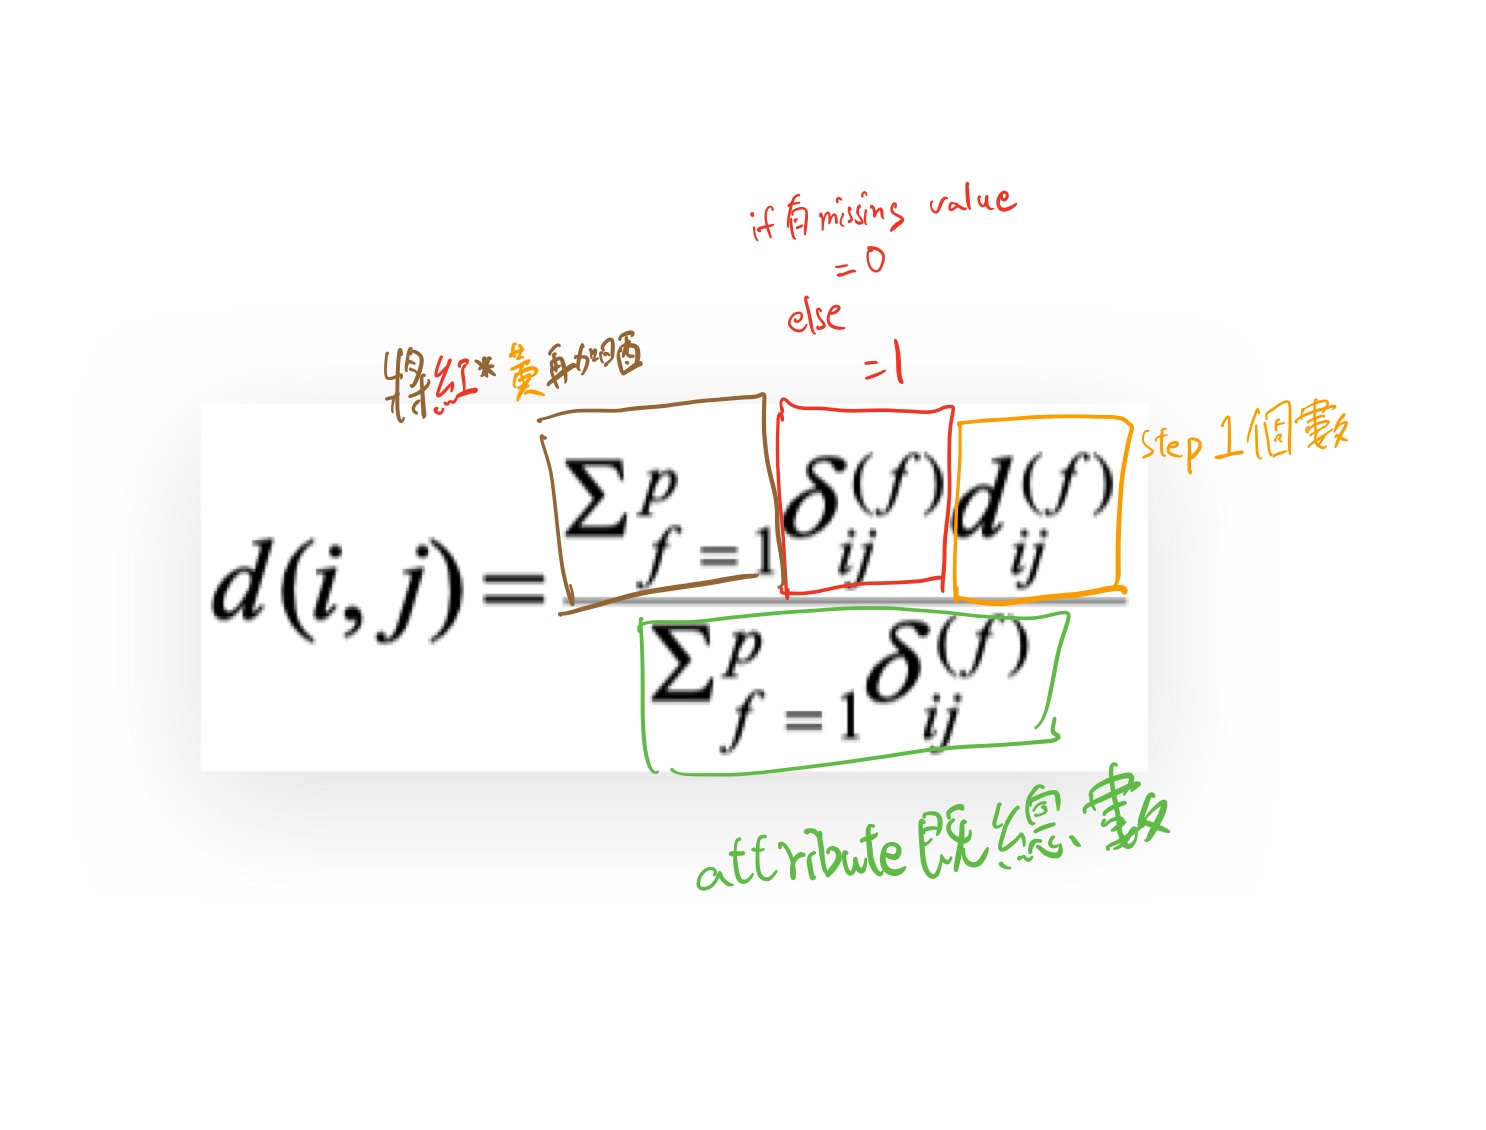 if 有 missing value
= 0
else
= 1
將紅*黃再加晒
step 1 個數
d(i, j) = \frac{\sum_{f=1}^{p} \delta_{ij}^{(f)} d_{ij}^{(f)}}{\sum_{f=1}^{p} \delta_{ij}^{(f)}}
attribute 既總數